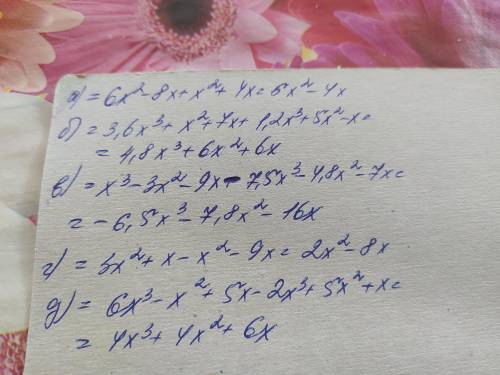 а) = 6x² - 8x + x² + 4x = 5x² - 4x
б) = 3,6x³ + x² + 7x + 1,2x³ + 5x² - x =
= 4,8x³ + 6x² + 6x
в) = x³ - 3x² - 9x - 7,5x³ - 4,8x² - 7x =
= - 6,5x³ - 7,8x² - 16x
г) = 3x² + x - x² - 9x = 2x² - 8x
д) = 6x³ - x² + 5x - 2x³ + 5x² + x =
= 4x³ + 4x² + 6x